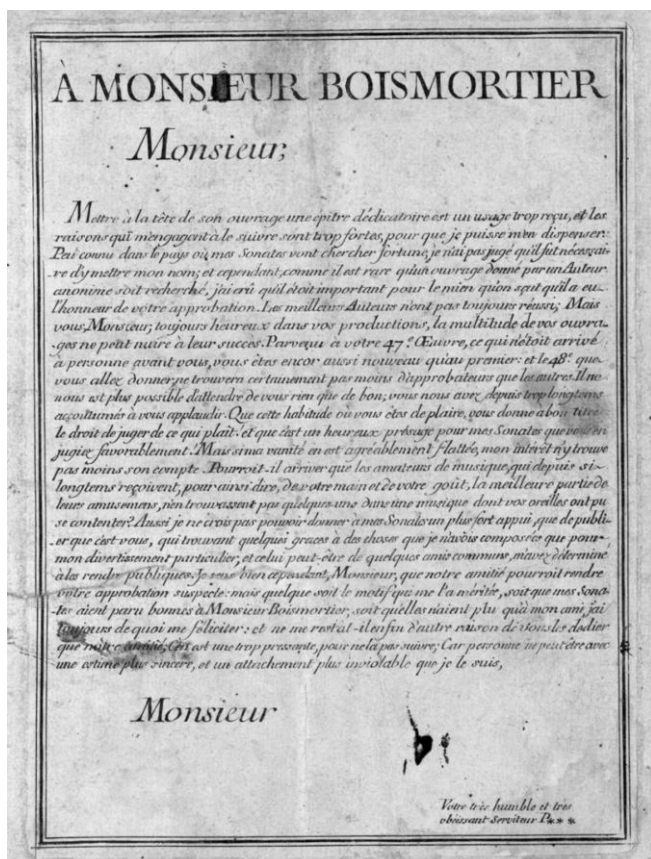 À MONSIEUR BOISMORTIER
Monsieur;
Mettre à la tête de son ouvrage une épitre dédicatoire est un usage trop reçu, et les
raisons qui m'engagent à le suivre sont trop fortes, pour que je puisse m'en dispenser.
Peu connu dans le pays où mes Sonates vont chercher fortune, je n'ai pas jugé qu'il fut nécessai-
re d'y mettre mon nom; et cependant, comme il est rare qu'un ouvrage donné par un Auteur
anonime soit recherché, j'ai crû qu'il étoit important pour le mien qu'on sçut qu'il a eu
l'honneur de votre approbation. Les meilleurs Auteurs n'ont pas toujours réussi; Mais
vous, Monsieur, toujours heureux dans vos productions, la multitude de vos ouvra-
ges ne peut nuire à leur succès. Parvenu à votre 47.e Œuvre, ce qui n'étoit arrivé
à personne avant vous, vous êtes encor aussi nouveau qu'au premier: et le 48.e que
vous allez donner, ne trouvera certainement pas moins d'approbateurs que les autres. Il ne
nous est plus possible d'attendre de vous rien que de bon; vous nous avez depuis trop longtems
accoutumés à vous applaudir. Que cette habitude où vous êtes de plaire, vous donne à bon titre
le droit de juger de ce qui plaît! et que c'est un heureux présage pour mes Sonates que vous en
jugiez favorablement! Mais si ma vanité en est agréablement flattée, mon intérêt n'y trouve
pas moins son compte. Pourroit-il arriver que les amateurs de musique, qui depuis si
longtems reçoivent, pour ainsi dire, de votre main et de votre goût, la meilleure partie de
leurs amusemens, n'en trouvassent pas quelques-uns dans une musique dont vos oreilles ont pu
se contenter? Aussi je ne crois pas pouvoir donner à mes Sonates un plus fort appui, que de publi-
er que c'est vous, qui trouvant quelques graces à des choses que je n'avois composées que pour
mon divertissement particulier, et celui peut-être de quelques amis communs, m'avez déterminé
à les rendre publiques. Je sens bien cependant, Monsieur, que notre amitié pourroit rendre
votre approbation suspecte: mais quelque soit le motif qui me l'a mérité, soit que mes Sona-
tes aient paru bonnes à Monsieur Boismortier, soit qu'elles n'aient plu qu'à mon ami, j'ai
toujours de quoi me féliciter: et ne me restât-il enfin d'autre raison de vous les dédier
que notre amitié; C'en est une trop pressante, pour ne la pas suivre; Car personne ne peut être avec
une estime plus sincère, et un attachement plus inviolable que je le suis,
Monsieur
Votre très humble et très
obéissant Serviteur P***